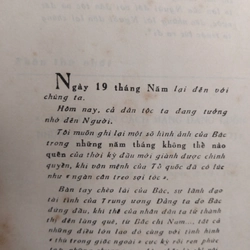 Ngày 19 tháng Năm lại đến với
chúng ta.
Hôm nay, cả dân tộc ta đang tưởng
nhớ đến Người.
Tôi muốn ghi lại một số hình ảnh của Bác
trong những năm tháng không thể nào
quên của thời kỳ đầu mới giành được chính
quyền, khi vận mệnh của Tổ quốc đã có lúc
như « ngàn cân treo sợi tóc ».
Bàn tay chèo lái của Bác, sự lãnh đạo
tài tình của Trung ương Đảng ta do Bác
đứng đầu, khí thế của nhân dân ta từ thành
thị đến làng quê, từ Bắc chí Nam... đã tạo
những điều lớn lao đó cùng với tình hình
« thù trong giặc ngoài » cực kỳ rối ren phức